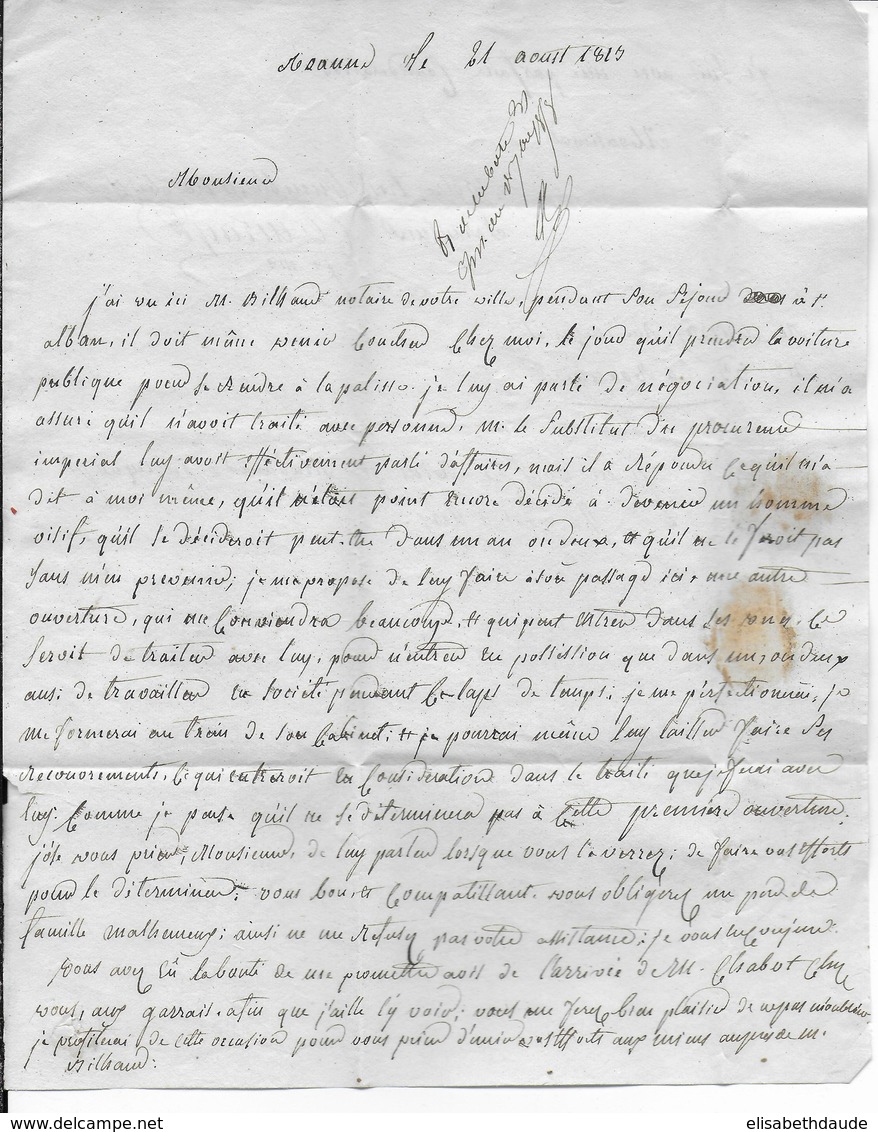 Roanne le 21 aoust 1813
Monsieur
j'ai vu ici M. Bilhaud notaire de votre ville, pendant son sejour à St
alban, il doit même venir coucher chez moi, le jour qu'il prendra la voiture
publique pour se rendre à la palisse. je luy ai parlé de négociation, il m'a
assuré qu'il n'avoit traité avec personne, M. le substitut du procureur
imperial luy avoit effectivement parlé d'affaires, mais il a répondu ce qu'il m'a
dit à moi même, qu'il n'étois point encore décidé à devenir un homme
oisif, qu'il se décideroit peut-être dans un an ou deux, et qu'il ne le feroit pas
sans m'en prevenir; je me propose de luy faire à son passage ici une autre
ouverture, qui me conviendra beaucoup, et qui peut entrer dans ses vues, ce
seroit de traiter avec luy, pour n'entrer en possession que dans un, ou deux
ans; de travailler en société pendant ce laps de temps; je me perfectionnerai, je
me formerai au train de son cabinet; et je pourrai même luy laisser faire ses
recouvrements, ce qui entreroit en considération dans le traité que je ferai avec
luy. Comme je pense qu'il ne se déterminera pas à cette première ouverture,
j'ose vous prier, Monsieur, de luy parler lorsque vous le verrez; de faire vos efforts
pour le déterminer; vous bon, et compatissant. vous obligerez un père de
famille malheureux; ainsi ne me refusez pas votre assistance; je vous
vous avez eû la bonté de me promettre avis de l'arrivée de M. Chabot chez
vous, aux garrais. afin que j'aille l'y voir; vous me ferez bien plaisir de ne pas m'oublier
je profiterai de cette occasion pour vous prier d'unir vos efforts aux miens auprès de M.
Bilhaud:
elisabethdaude